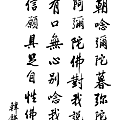 朝唸彌陀暮彌陀
阿彌陀佛對我說
有口無心別唸我
信願具足自性佛
釋